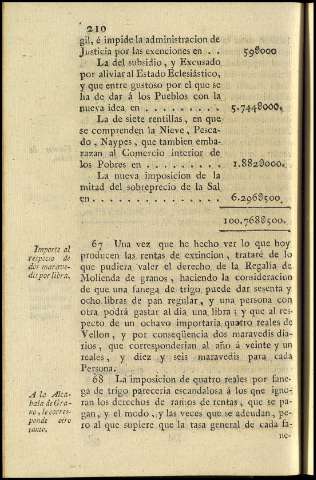 210
gil, é impide la administracion de
Justicia por las exenciones en . . 598000
La del subsidio, y Excusado
por aliviar al Estado Eclesiástico,
y que entre gustoso por el que se
ha de dar á los Pueblos con la
nueva idea en . . . . . . . . . 5.7448000.
La de siete rentillas, en que
se comprenden la Nieve, Pesca-
do, Naypes, que tambien emba-
razan al Comercio interior de
los Pobres en . . . . . . . . . 1.8828000.
La nueva imposicion de la
mitad del sobreprecio de la Sal
en . . . . . . . . . . . . . . 6.2968500.
100.7688500.
Importe al
respecto de
dos marave-
dis por libra.
67 Una vez que he hecho ver lo que hoy
producen las rentas de extincion, trataré de lo
que pudiera valer el derecho de la Regalía de
Molienda de granos, haciendo la consideracion
de que una fanega de trigo puede dar sesenta y
ocho libras de pan regular, y una persona con
otra podrá gastar al dia una libra; y que al res-
pecto de un ochavo importaria quatro reales de
Vellon, y por conseqüencia dos maravedis dia-
rios, que corresponderian al año á veinte y un
reales, y diez y seis maravedis para cada
Persona.
A la Alca-
bala de Gra-
no, le corres-
ponde otro
tanto.
68 La imposicion de quatro reales por fane-
ga de trigo pareceria escandalosa á los que igno-
ran los derechos de ramos de rentas, que se pa-
gan, y el modo, y las veces que se adeudan, pe-
ro al que supiere que la tasa general de cada fa-
ne-